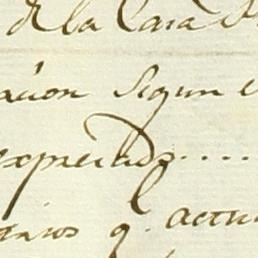 de la Casa
ación Segun e
expresado....
arios q. actu